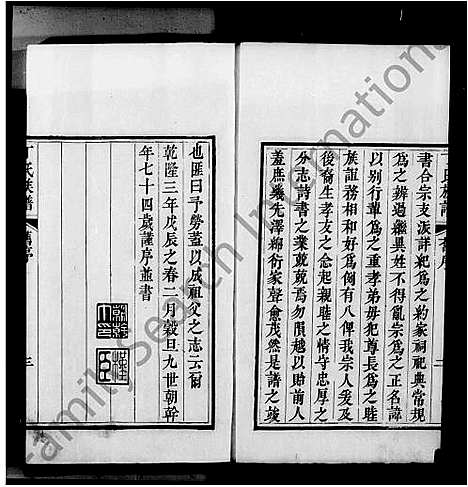 丁氏族譜
舊序
二
書合宗支派詳紀為之約家祠祀典常規
為之辨過繼異姓不得亂宗為之正名諱
以別行輩為之重孝弟毋犯尊長為之睦
族誼務相和好為倘有八俾我宗人爰及
後裔生孝友之念起親睦之情守忠厚之
分志詩書之業兢兢焉勿隕越以貽前人
羞庶幾先澤綿衍家聲愈茂然是譜之竣
也匪曰予勞蓋以成祖父之志云爾
乾隆三年戊辰之春二月穀旦九世朝幹
年七十四歲謹序並書
丁氏族譜
舊序
三
Family Search International